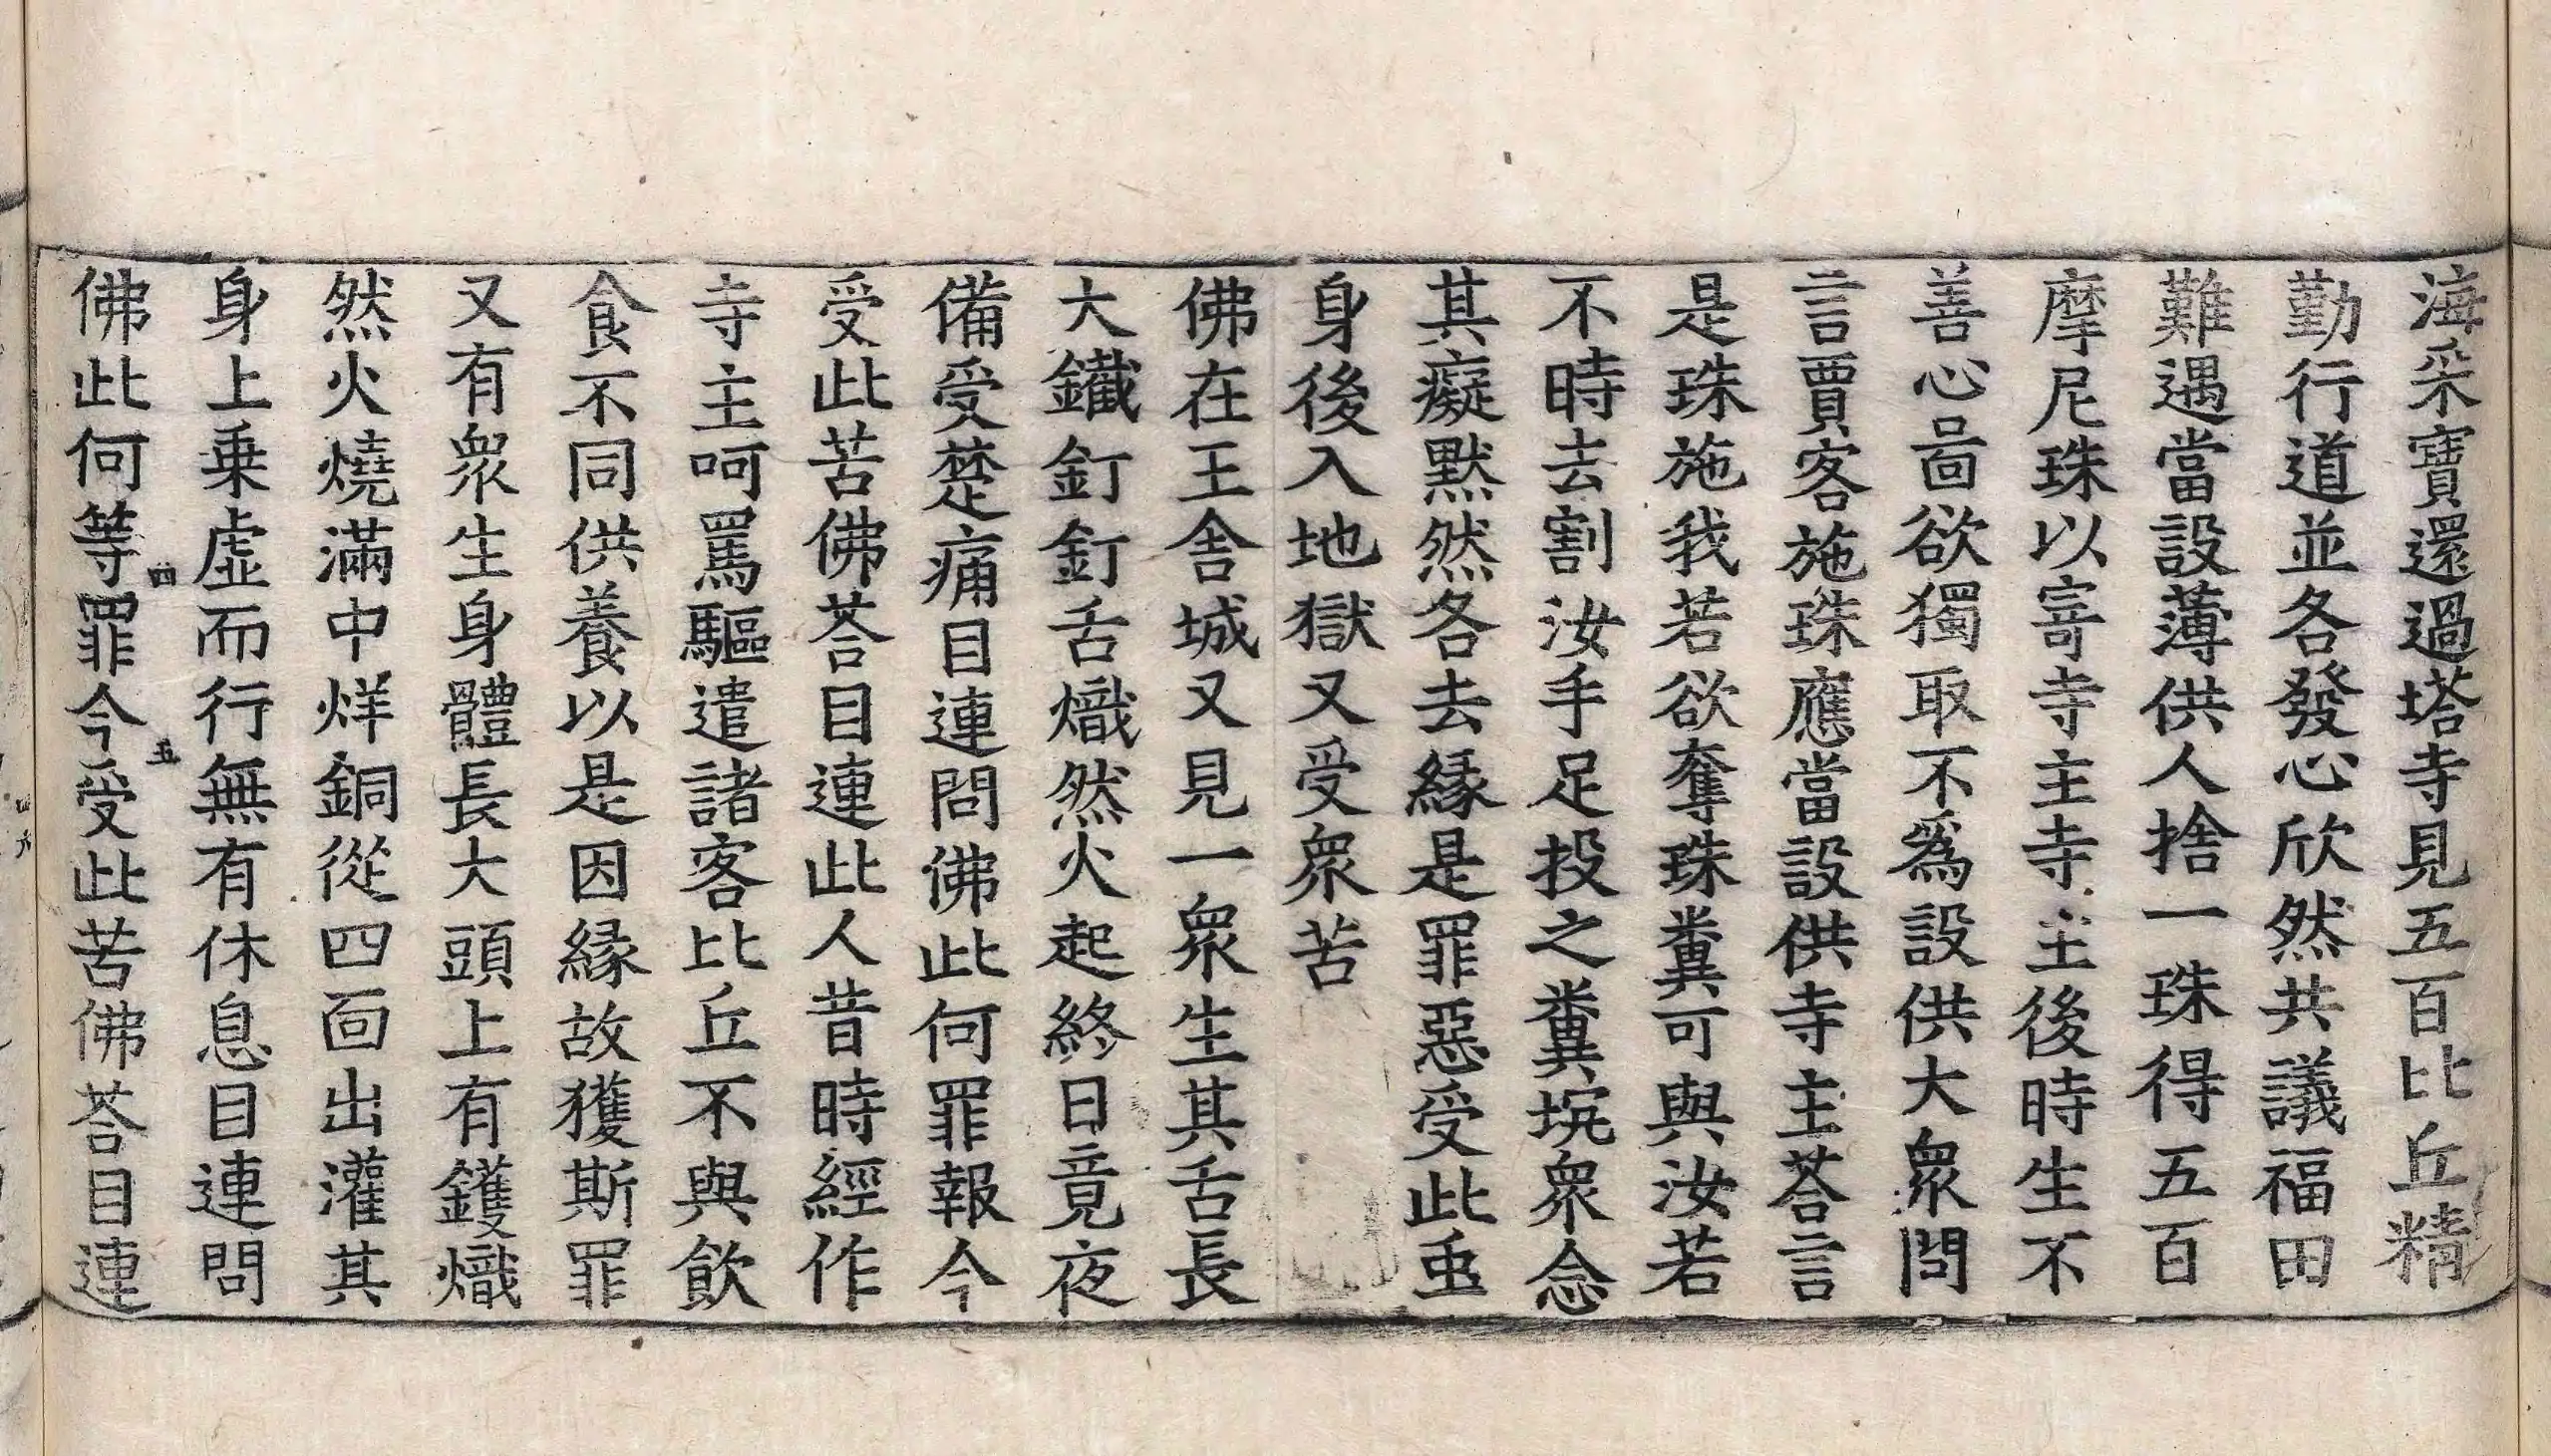 海采寶還過塔寺見五百比丘精
勤行道並各發心欣然共議福田
難遇當設薄供人捨一珠得五百
摩尼珠以寄寺主寺主後時生不
善心啚欲獨取不為設供大眾問
言賈客施珠應當設供寺主荅言
是珠施我若欲奪珠糞可與汝若
不時去割汝手足投之糞坑衆念
其癡默然各去緣是罪惡受此䖝
身後入地獄又受衆苦
佛在王舍城又見一衆生其舌長
大鐵釘釘舌熾然火起終日竟夜
備受楚痛目連問佛此何罪報今
受此苦佛荅目連此人昔時經作
寺主呵罵驅遣諸客比丘不與飲
食不同供養以是因緣故獲斯罪
又有衆生身體長大頭上有鑊熾
然火燒滿中烊銅從四面出灌其
身上乗虛而行無有休息目連問
佛此何等罪今受此苦佛荅目連
四
五
四
六